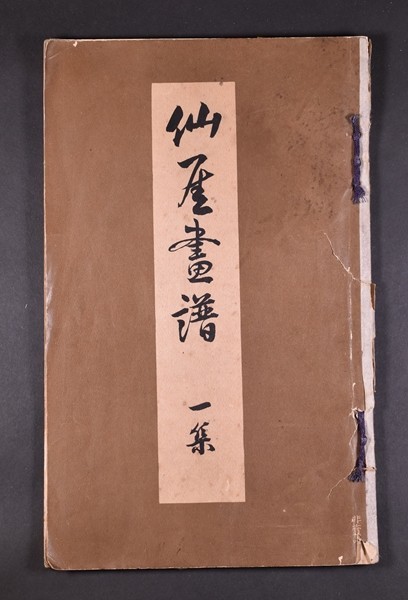 仙厓畫譜 一集